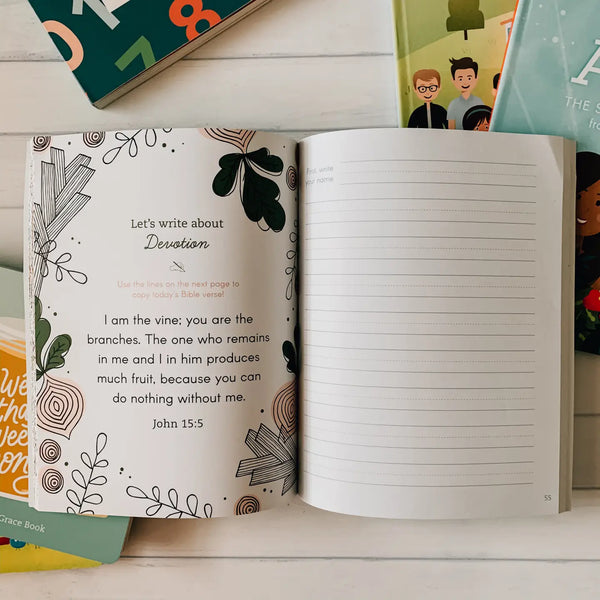 10
7
8
A
THE S
fro
Let's write about
Devotion
Use the lines on the next page to
copy today's Bible verse!
I am the vine; you are the
branches. The one who remains
in me and I in him produces
much fruit, because you can
do nothing without me.
John 15:5
First, write
your name
55
We
tha
wee
on
Grace Book